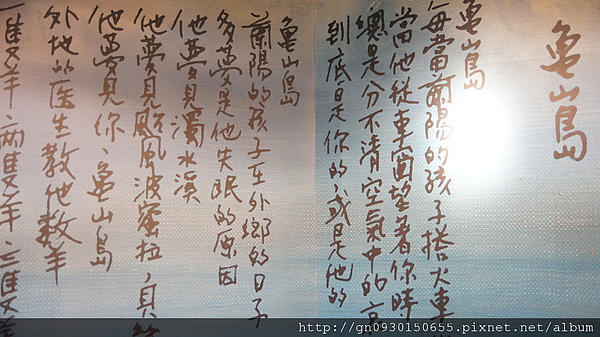 龜山島
龜山島
每當蘭陽的孩子搭火車
當他從車窗望著你時
總是分不清空氣中的
到底是你的,或是他的
龜山島
蘭陽的孩子在外鄉的日子
多夢是他失眠的原因
他夢見濁水溪
他夢見颱風波蜜拉,貝
他夢見你、龜山島
外地的医生教他數羊
一隻羊、兩隻羊、三隻羊
http://gn0930150655.pixnet.net/album